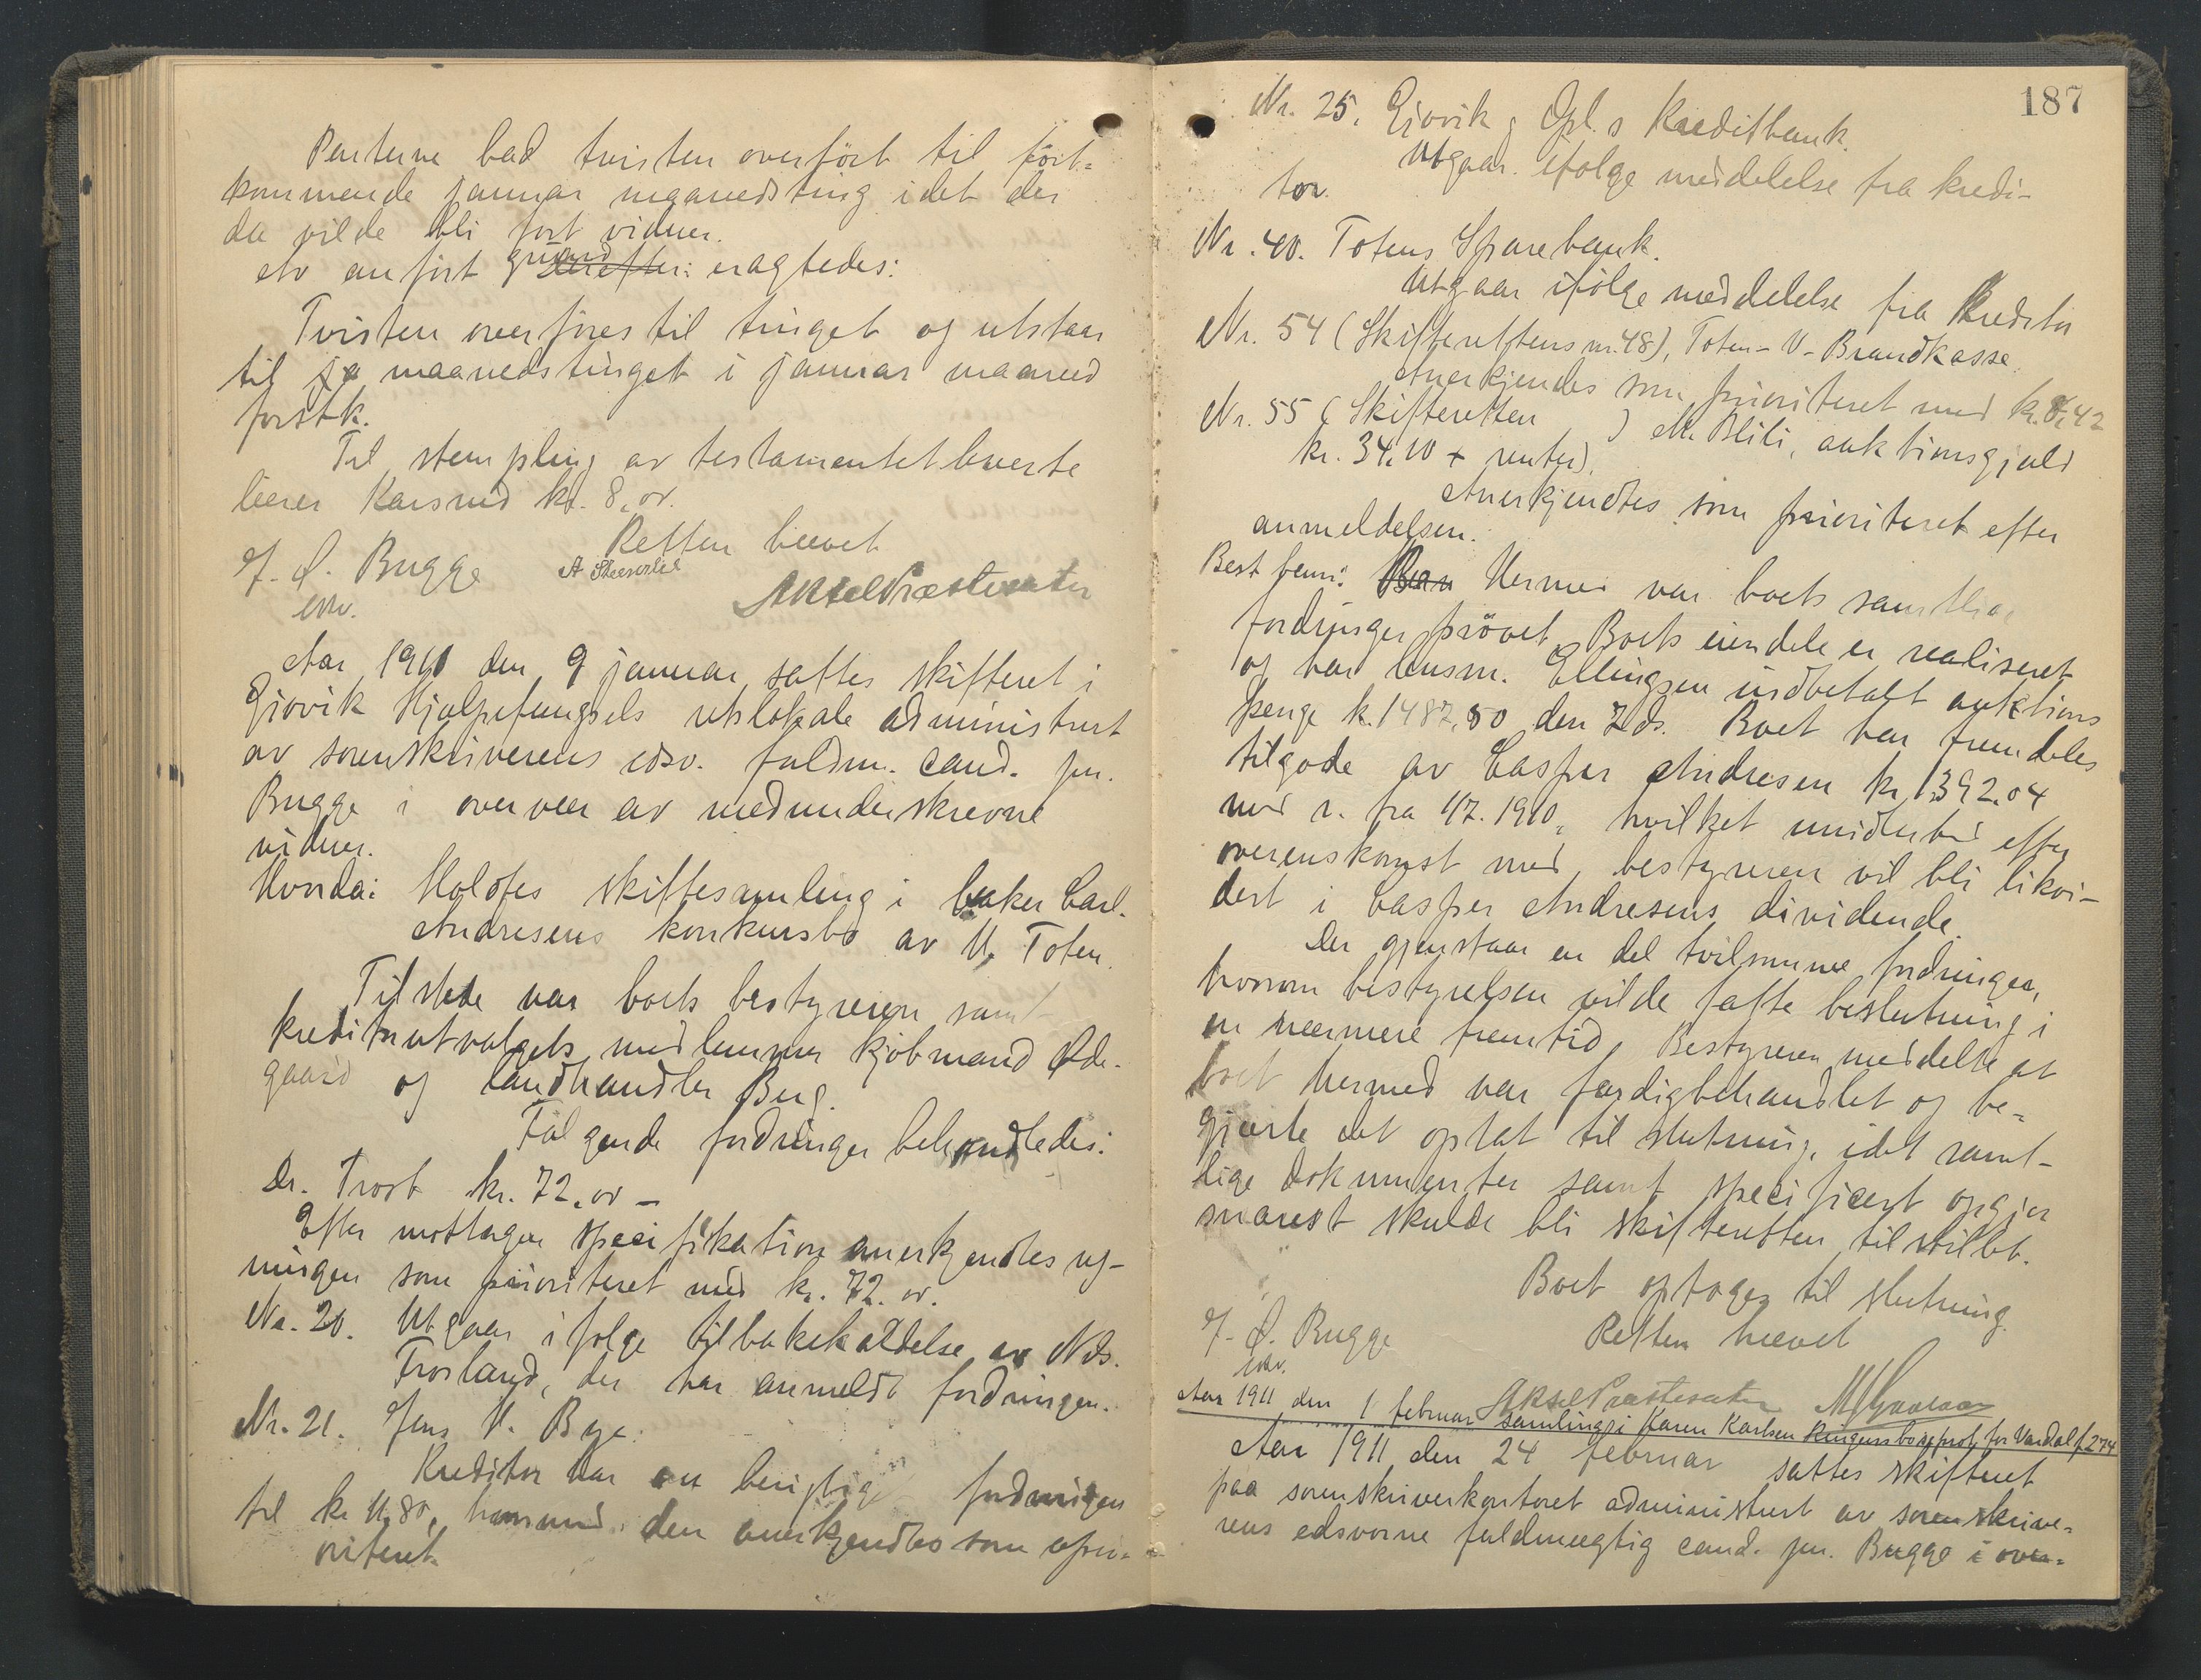 Parterne bad tvisten overført til først-
kommende januar maanedsting idet der
da vilde bli ført vidner.
Av anført grund eragtedes:
Tvisten overføres til tinget og utstaar
til ja maanedstinget i januar maaned
førstk.
Til stempling av testamentet leverte
Karsrud kr. 8,00.
Retten hævet
J. Q. Bugge
edsv.
Aksel Præstesæter
Aar 1911 den 9 januar sattes skifteret i
Gjøvik Hjælpefængsels retslokale administrert
av sorenskriverens edsv. fuldm. cand. jur.
Bugge i overvær av medunderskrevne
vidner.
Hvorda: Holdtes skiftesamling i baker Carl
Andresens konkursbo av V. Toten.
Tilstede var boets bestyrer samt
kreditorutvalgets medlemmer kjøbmand Øde-
gaard og landhandler Berg.
Følgende fordringer behandledes:
Dr. Trost kr. 72,00 -
Efter mottagen specifikation anerkjendtes reg-
ningen som prioriteret med kr. 72.00.
Nr. 20. Utgaar ifølge tilbakekaldelse av Nils
Frosland, der har anmeldt fordringen.
Nr. 21. Jens V. Bye.
Kreditor har berigtiget fordringen
til kr 11,80, hvormed den anerkjendtes som upri-
oriteret.
187
Nr. 25. Gjøvik og Opl.s Kreditbank.
Utgaar ifølge meddelelse fra kredi-
tor.
Nr. 40. Totens Sparebank.
Utgaar ifølge meddelelse fra kreditor
Nr. 54 (Skifterettens nr. 48), Toten-V-Brandkasse.
Anerkjendes som prioriteret med kr. 8,42
Nr. 55 (Skifteretten ) M. Blili, auktionsgjæld
kr. 34,10 + renter).
Anerkjendtes som prioriteret efter
anmeldelsen.
Best bem: Hermed var boets samtlige
fordringer prøvet. Boets eiendele er realiseret
og har lensm. Ellingsen indbetalt auktions
penge k. 1487,80 den 7 ds. Boet har fremdeles
tilgode av Casper Andresen kr 1392.04
med r. fra 1/7. 1910, hvilket imidlertid efter
overenskomst med bestyreren vil bli likvi-
dert i Casper Andresens dividende.
Der gjenstaar en del tvilsomme fordringer,
hvorom bestyrelsen vilde fatte beslutning i
en nærmere fremtid. Bestyreren meddelte at
boet hermed var færdigbehandlet og be-
gjærte det optat til slutning, idet samt-
lige dokumenter samt specificert opgjør
snarest skulde bli skifteretten tilstillet.
Boet optages til slutning.
Retten hævet
J. Q. Bugge
edsv.
Aksel Præstesæter
Aar 1911 den 1 februar samling i Karen Karlsen Ringens bo se prot. for Vardal f. 274
Aar 1911 den 24 februar sattes skifteret
paa sorenskriverkontoret administrert av sorenskrive-
rens edsvorne fuldmægtig cand. jur. Bugge i over-